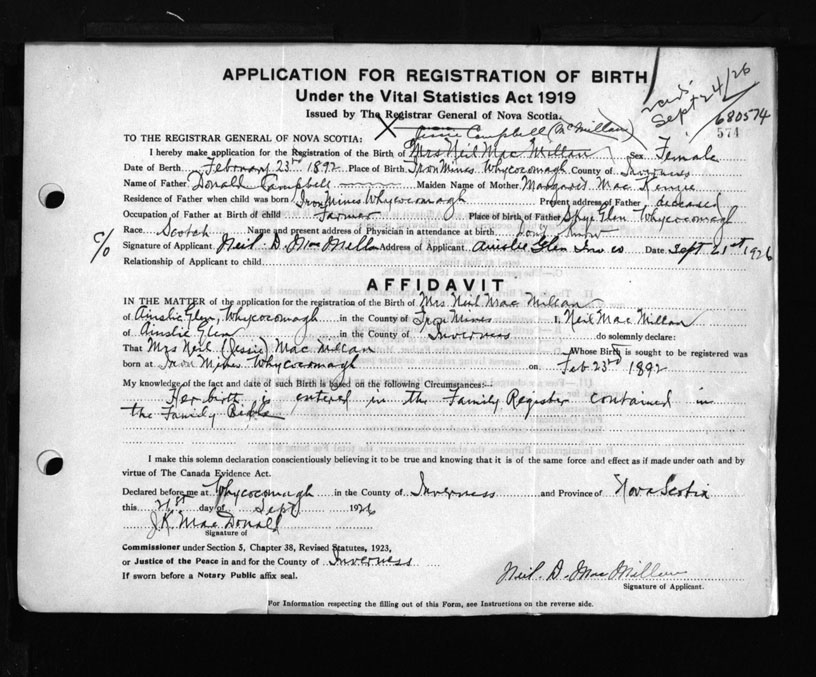 APPLICATION FOR REGISTRATION OF BIRTH
Under the Vital Statistics Act 1919
Issued by The Registrar General of Nova Scotia.
Sept 24/26
680574
574
X Jessie Campbell (McMillan)
TO THE REGISTRAR GENERAL OF NOVA SCOTIA:
I hereby make application for the Registration of the Birth of Mrs Neil Mac Millan Sex Female
Date of Birth February 23rd 1892 Place of Birth Iron Mines Whycocomagh County of Inverness
Name of Father Donald Campbell Maiden Name of Mother Margaret Mac Kenzie
Residence of Father when child was born Iron Mines Whycocomagh Present address of Father deceased
Occupation of Father at Birth of child Farmer Place of birth of Father Skye Glen Whycocomagh
Race Scotch Name and present address of Physician in attendance at birth Don't know
% Signature of Applicant Neil. D. Mac Millan Address of Applicant Ainslie Glen Inv co Date Sept 21st 1926
Relationship of Applicant to child
AFFIDAVIT
IN THE MATTER of the application for the registration of the Birth of Mrs Neil Mac Millan
of Ainslie Glen, Whycocomagh in the County of Iron Mines I, Neil Mac Millan
of Ainslie Glen in the County of Inverness do solemnly declare:
That Mrs Neil (Jessie) Mac Millan Whose Birth is sought to be registered was
born at Iron Mines Whycocomagh on Feb 23rd 1892
My knowledge of the fact and date of such Birth is based on the following Circumstances:—
Her birth is entered in the Family Register contained in
the Family Bible
I make this solemn declaration conscientiously believing it to be true and knowing that it is of the same force and effect as if made under oath and by
virtue of The Canada Evidence Act.
Declared before me at Whycocomagh in the County of Inverness and Province of Nova Scotia
this 21st day of Sept 1926
J.K. Mac Donald
Signature of
Commissioner under Section 5, Chapter 38, Revised Statutes, 1923,
or Justice of the Peace in and for the County of Inverness
If sworn before a Notary Public affix seal.
Neil. D. Mac Millan
Signature of Applicant.
For Information respecting the filling out of this Form, see Instructions on the reverse side.